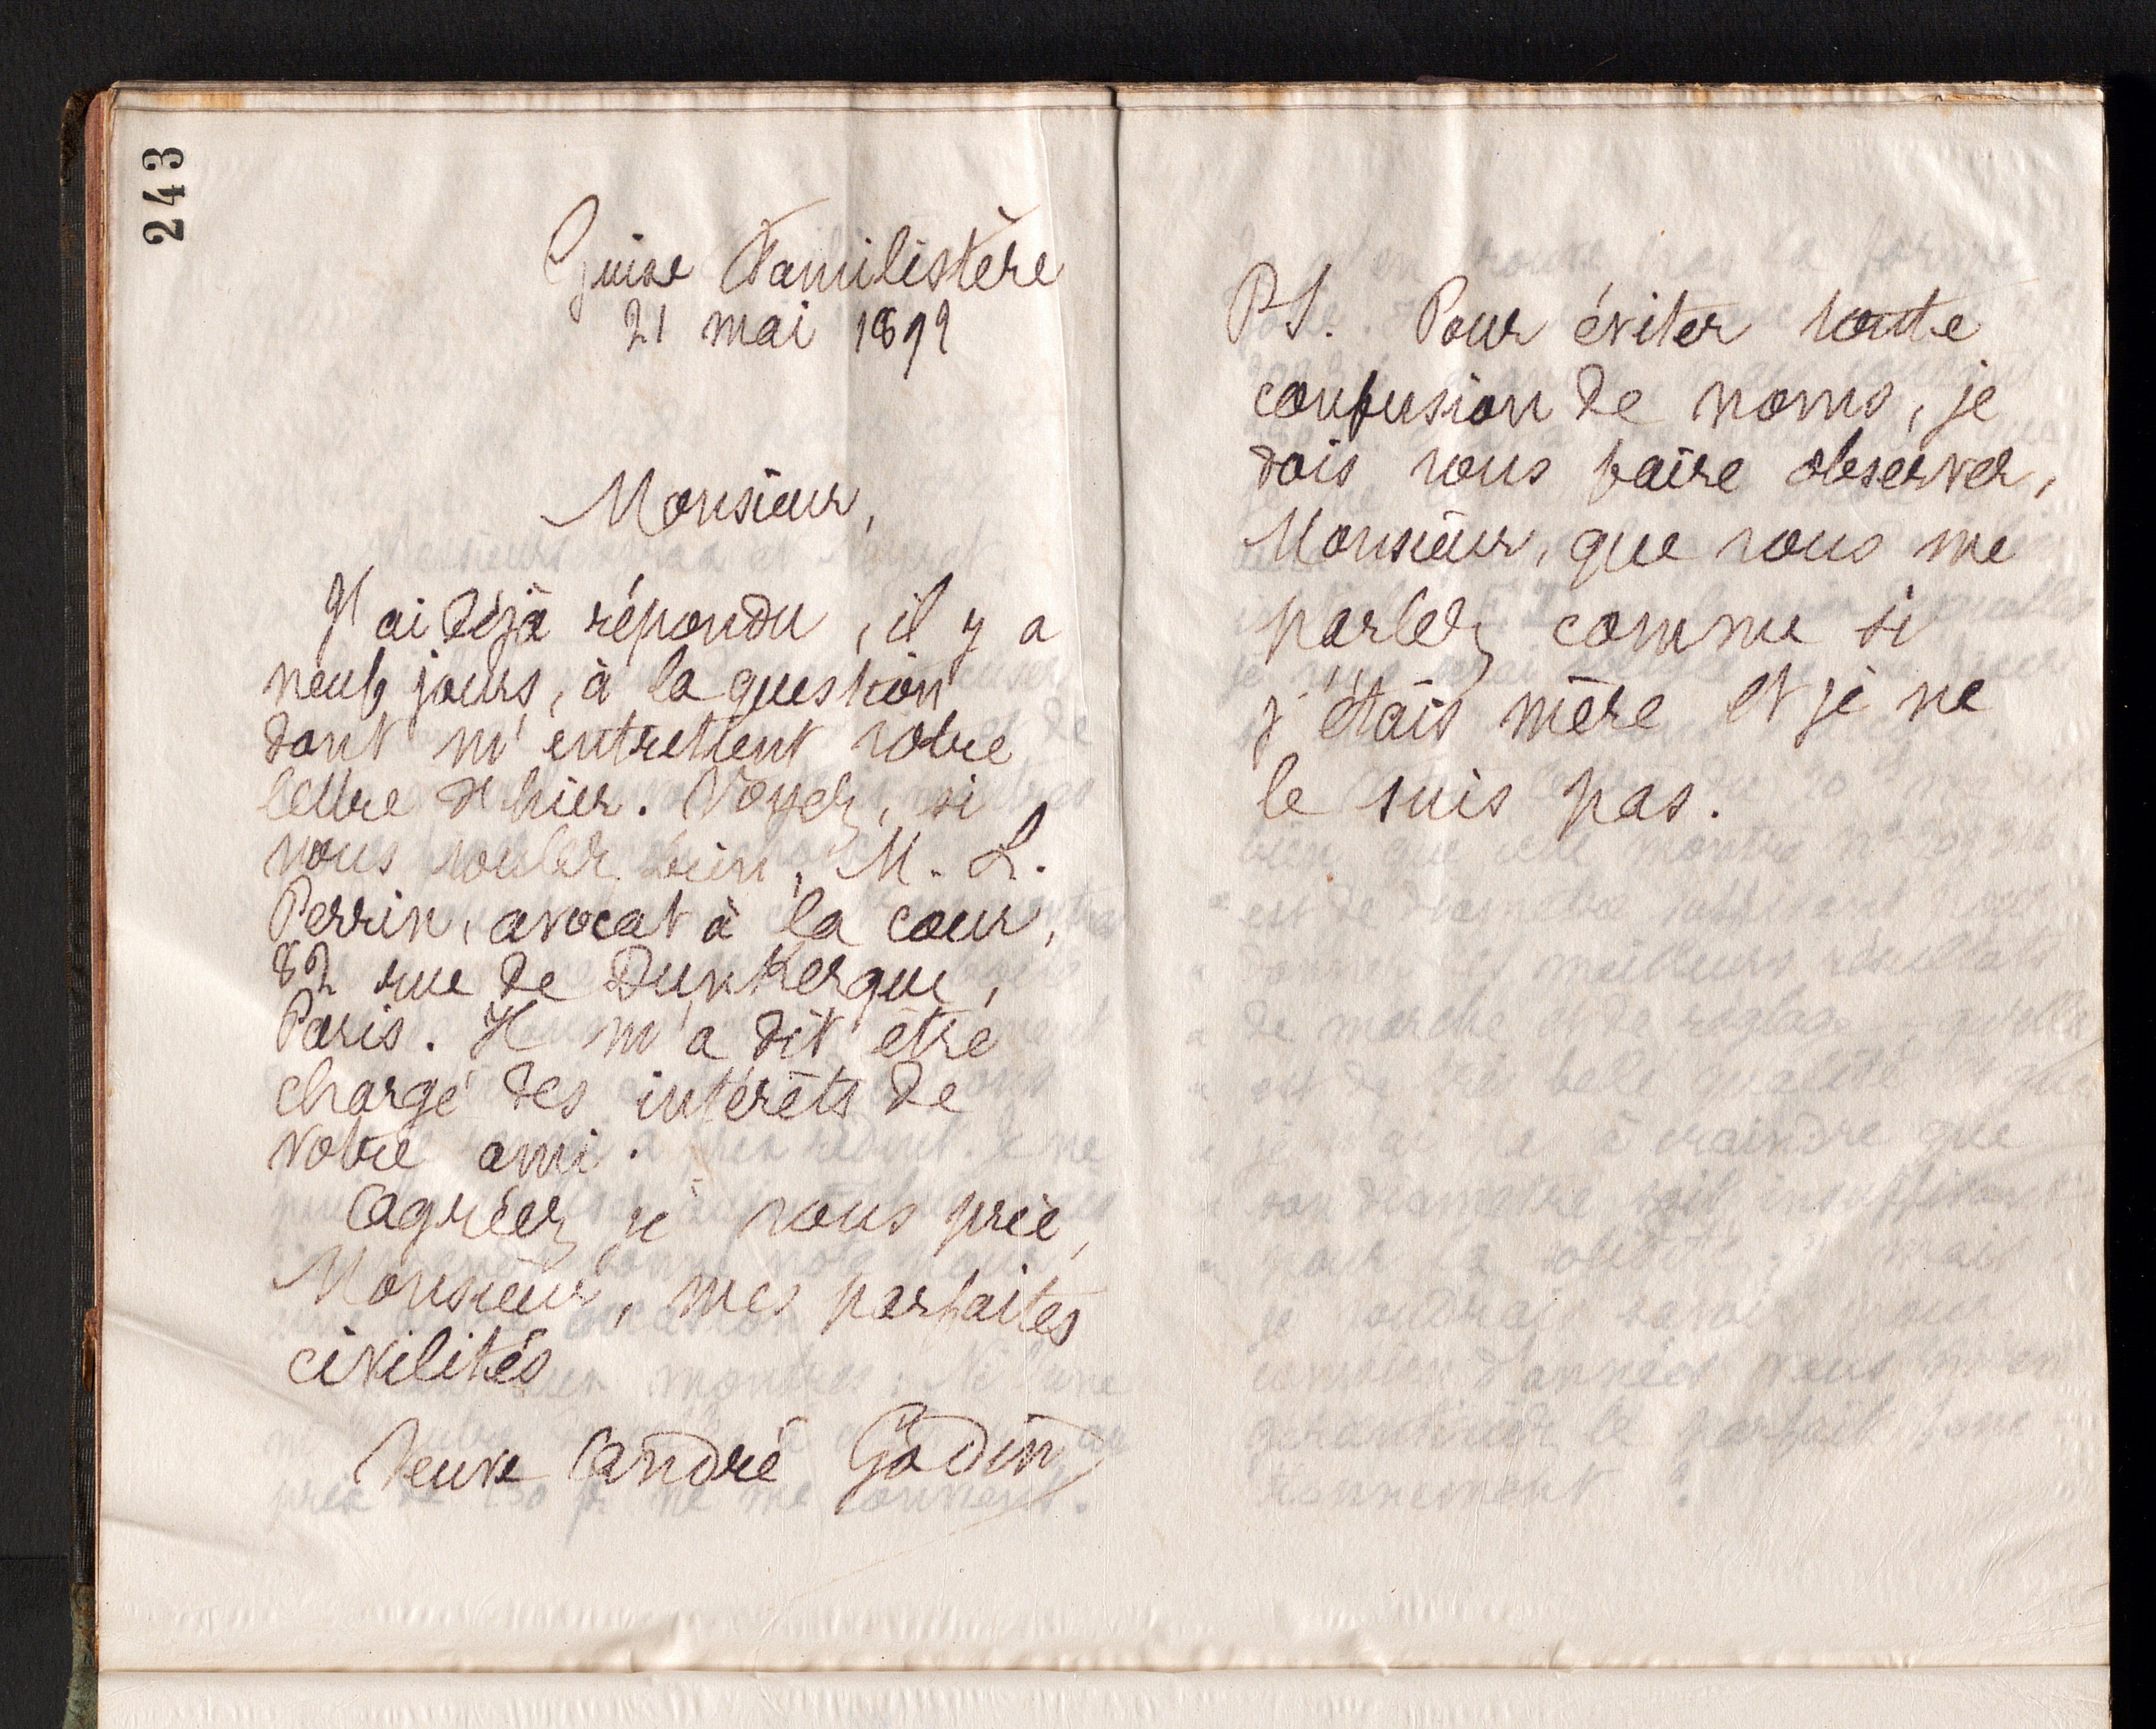 243
Guise Familistère
21 mai 1892
Monsieur,
J'ai déjà répondu, il y a
neuf jours, à la question
dont m'entretient votre
lettre d'hier. Voyez, si
vous voulez bien, M. L.
Perrin, avocat à la cour,
82 rue de Dunkerque,
Paris. Il m'a dit être
chargé des intérêts de
votre ami.
Agréez, je vous prie,
Monsieur, mes parfaites
civilités
Veuve André Godin
PS. Pour éviter toute
confusion de noms, je
dois vous faire observer,
Monsieur, que vous me
parlez comme si
j'étais mère et je ne
le suis pas.